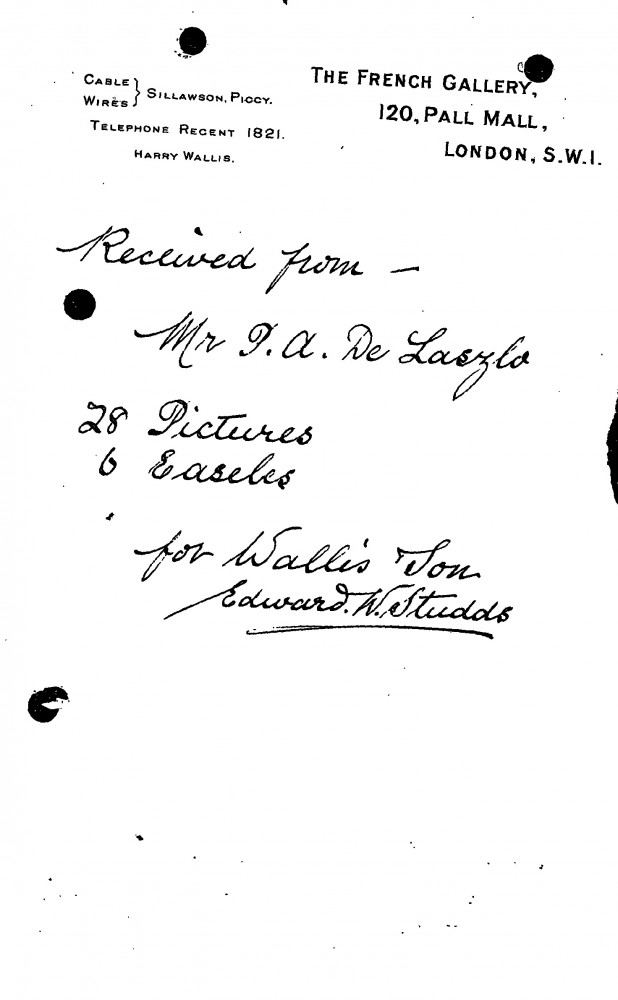 CABLE
WIRES } SILLAWSON, PICCY.
TELEPHONE REGENT 1821.
HARRY WALLIS.
THE FRENCH GALLERY,
120, PALL MALL,
LONDON, S.W.1.
Received from —
Mr P. A. De Laszlo
28 Pictures
6 Easeles
for Wallis & Son
Edward. W. Studds